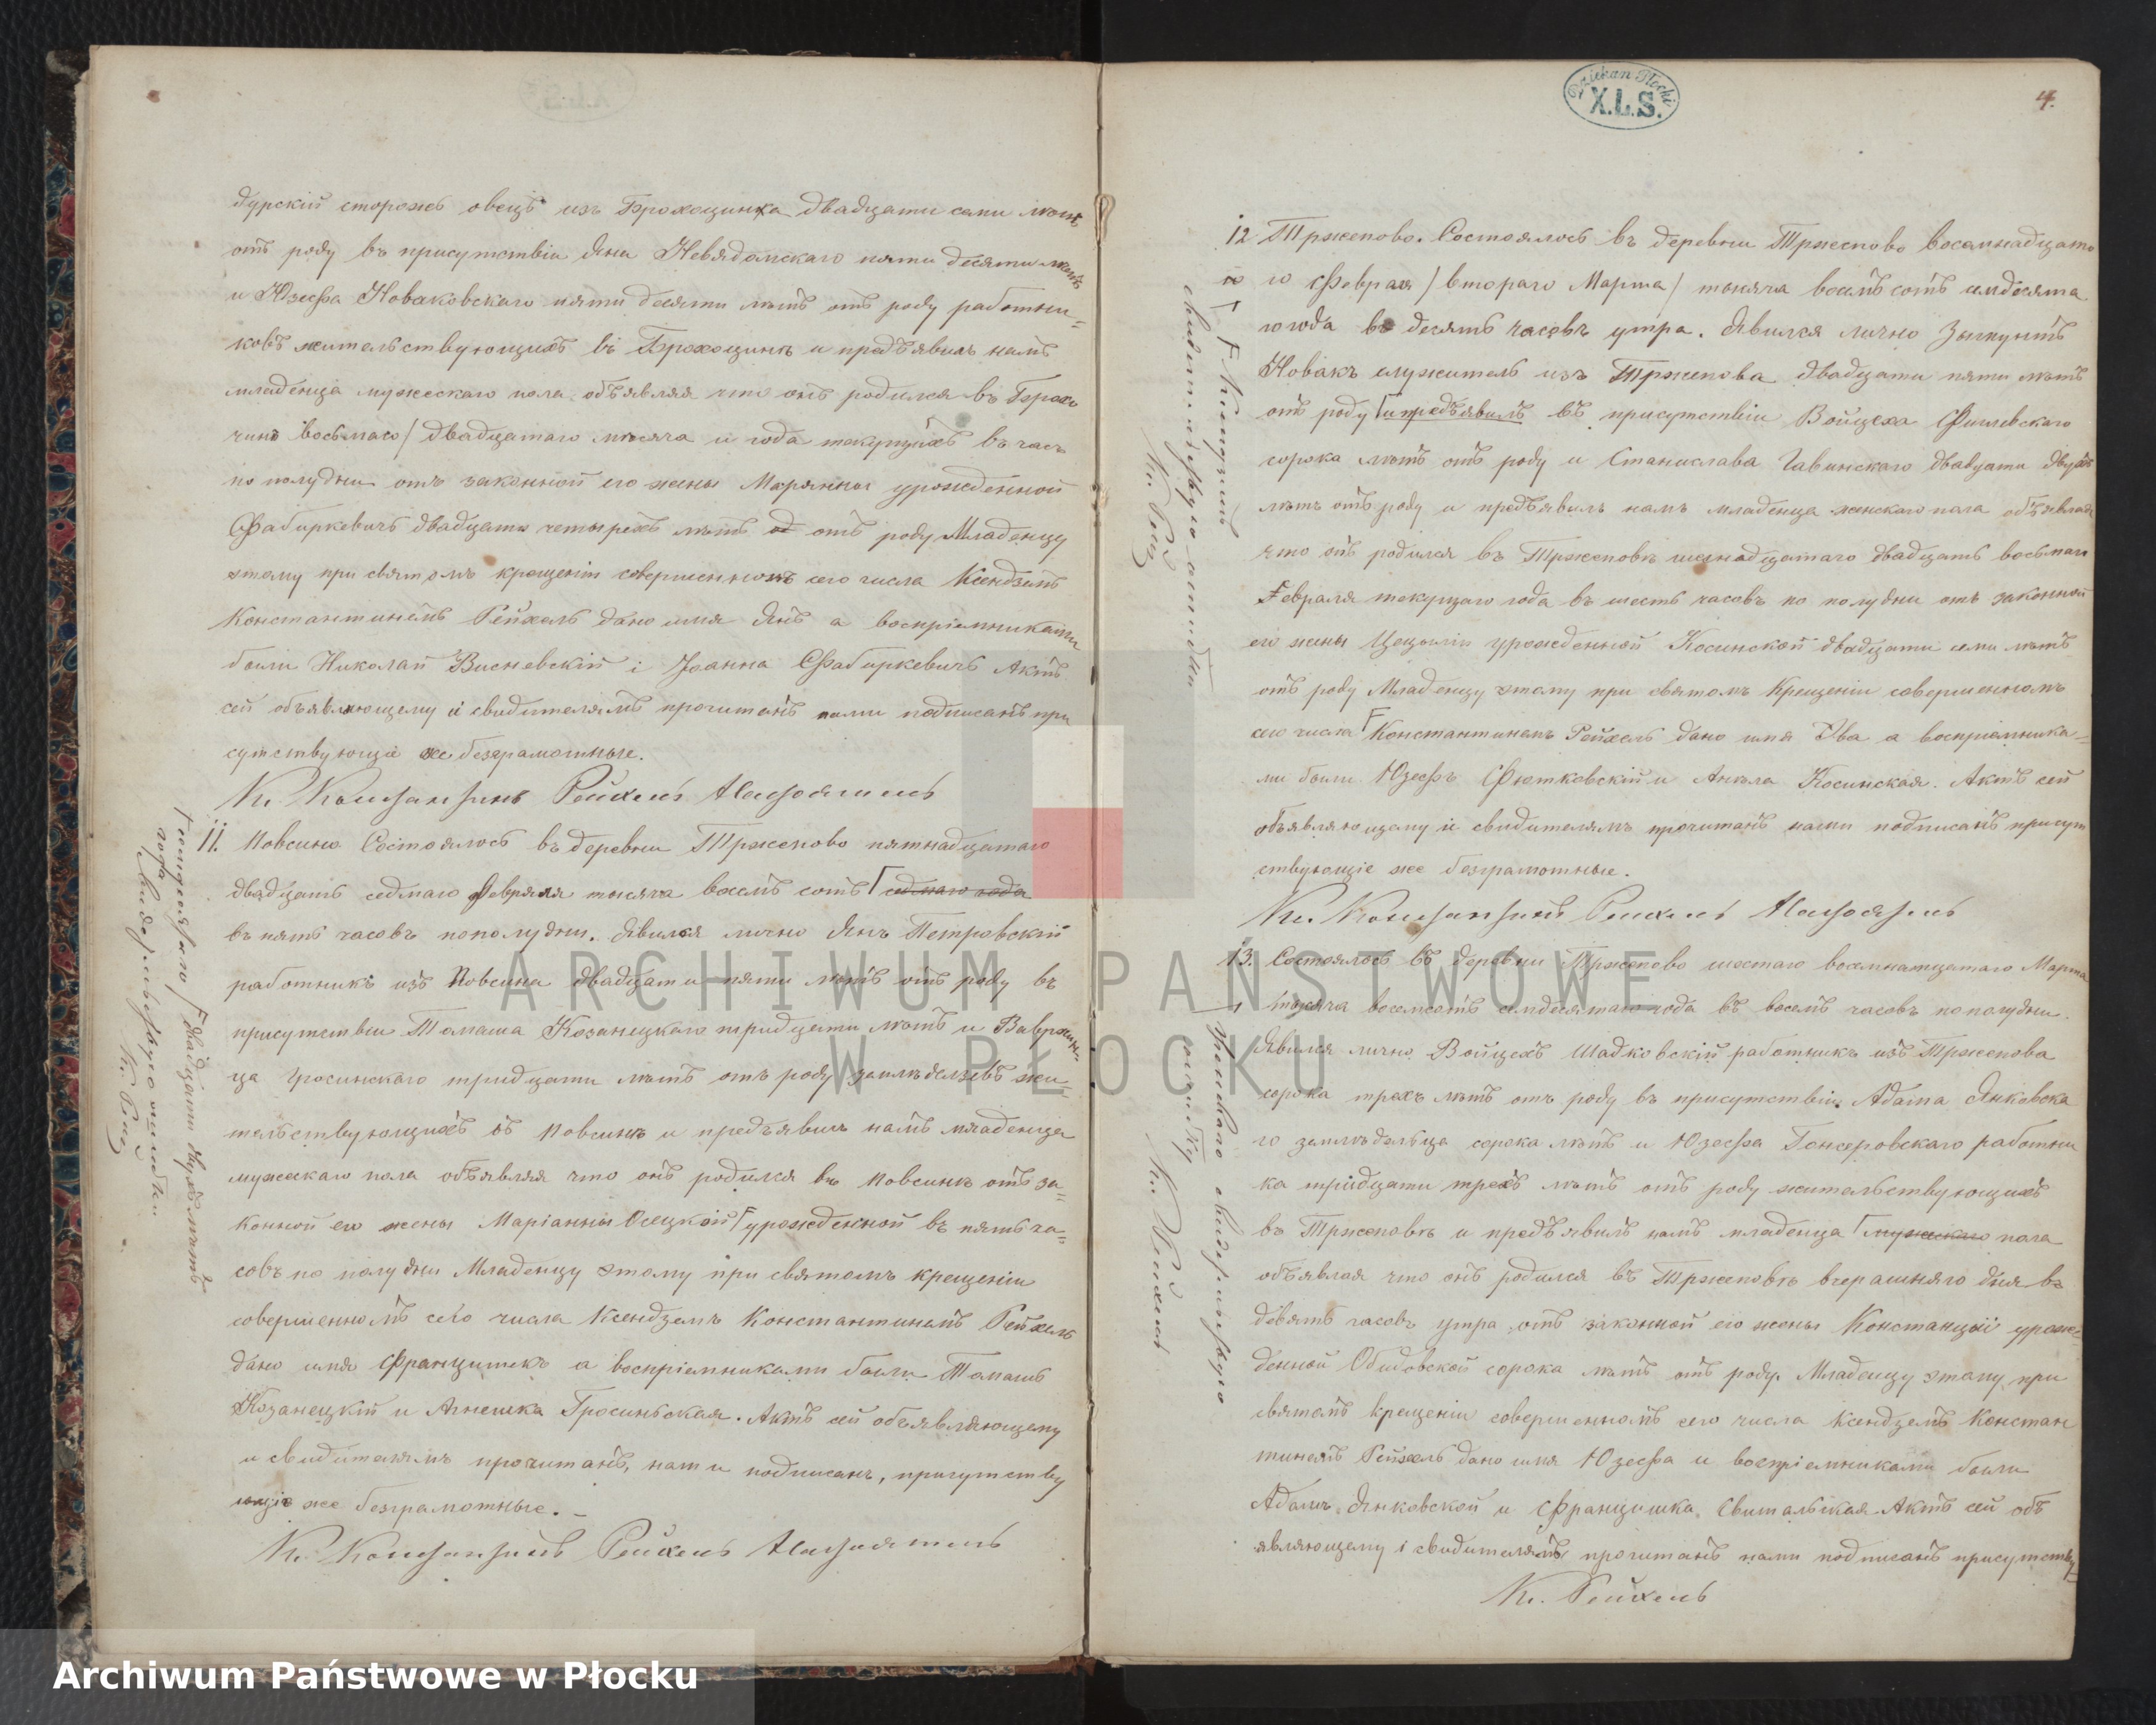 дурскій сторожъ овецъ изъ Брохоцинка двадцати семи лѣтъ
отъ роду въ присутствіи Яна Невядомскаго пяти десяти лѣтъ
и Юзефа Новаковскаго пяти десяти лѣтъ отъ роду работни=
ковъ жительствующихъ въ Брохоцинкѣ и предъявилъ намъ
младенца мужескаго пола объявляя что онъ родился въ Брохо
чинѣ восьмаго / двадцатаго мѣсяча и года текущихъ въ часъ
по полудни отъ законной его жены Марянны урожденной
Фабиркевичъ двадцати четырехъ лѣтъ отъ роду Младенцу
этому при святомъ крещеніи совершенномъ сего числа Ксендземъ
Константинемъ Рейхель дано имя Янъ а воспріемниками
были Николай Висневскій і Іоанна Фабиркевичъ Актъ
сей объявляющему и свидителямъ прочитанъ нами подписанъ при
сутствующіе же безграмотные.
Кс. Константинъ Рейхель Настоятель
11. Повсино Состоялось въ деревни Тржепово пятнадцатаго
двадцать седмаго Февраля тысяча восемъ сотъ Г седмаго года
въ пять часовъ пополудни. Явился лично Янъ Петровскій
работникъ изъ Повсина двадцати пяти лѣтъ отъ роду въ
присутствіи Томаша Козанецкаго тридцати лѣтъ и Вавржин=
ца Гросинскаго тридцати лѣтъ отъ роду замлѣдельзевъ жи=
тельствующихъ въ Повсинѣ и предъявилъ намъ младенца
мужескаго пола объявляя что онъ родился въ Повсинѣ отъ за=
конной его жены Маріанны Осецкой Г урожденной въ пять ча=
совъ по полудни Младенцу этому при святомъ крещеніи
совершенномъ сего числа Ксендземъ Константинемъ Рейхель
дано имя Францишекъ а воспріемниками были Томашъ
Козанецкій и Агнешка Гросиньская. Актъ сей объявляющему
и свидителямъ прочитанъ, нами подписанъ, присутству
ющіе же безграмотные.
Кс. Константинъ Рейхель Настоятель
Г семдесятаго года / Г двадцати двухъ лѣтъ
свидетельствую ошибки
Кс. Рей
Dziekan Płocki
X.L.S.
4.
12 Тржепово. Состоялось въ деревни Тржепово восемнадцата
го Февраля / втораго Марта / тысяча восемъ сотъ семдесята
го года въ десять часовъ утра. Явился лично Зыгмунтъ
Новакъ служитель изъ Тржепова двадцати пяти лѣтъ
отъ роду Г и предъявилъ въ присутствіи Войцеха Филевскаго
сорока лѣтъ отъ роду и Станислава Гавинскаго двадцати двухъ
лѣтъ отъ роду и предъявилъ намъ младенца женскаго пола объявляя
что онъ родился въ Тржеповѣ шеснадцатаго двадцать восьмаго
Февраля текущаго года въ шесть часовъ по полудни отъ законной
его жены Цецыліи урожденной Косинской двадцати семи лѣтъ
отъ роду Младенцу этому при святомъ Крещеніи совершенномъ
сего числа Г Константинемъ Рейхель дано имя Эва а воспріемника=
ми были Юзефъ Фютковскій и Анѣла Косинская. Актъ сей
объявляющему и свидителямъ прочитанъ нами подписанъ присут
ствующіе же безграмотные.
Кс. Константинъ Рейхель Настоятель
Г Г Ксендземъ
свидетельствую ошибки
Кс. Рей
13. Состоялось въ деревни Тржепово шестаго восемнатцатаго Марта
тысяча восемсотъ семдесятаго года въ восемъ часовъ пополудни.
Явился лично Войцехъ Шадковскій работникъ изъ Тржепова
сорока трехъ лѣтъ отъ роду въ присутствіи Адама Янковска
го замлѣдельца сорока лѣтъ и Юзефа Гонсеровскаго работни
ка тридцати трехъ лѣтъ отъ роду жительствующихъ
въ Тржеповѣ и предъявилъ намъ младенца Г мужескаго пола
объявляя что онъ родился въ Тржеповѣ вчерашняго дня въ
девять часовъ утра отъ законной его жены Констанціи урож=
денной Обидовской сорока лѣтъ отъ роду. Младенцу этому при
святомъ Крещеніи совершенномъ сего числа Ксендземъ Констан
тинемъ Рейхель дано имя Юзефа и воспріемниками были
Адамъ Янковской и Францишка Свитальская Актъ сей объ
являющему і свидителямъ прочитанъ нами подписанъ присутству=
Кс. Рейхель
Г женскаго свидетельствую
ошибку Кс. Рейхель
ARCHIWUM PAŃSTWOWE
W PŁOCKU
Archiwum Państwowe w Płocku